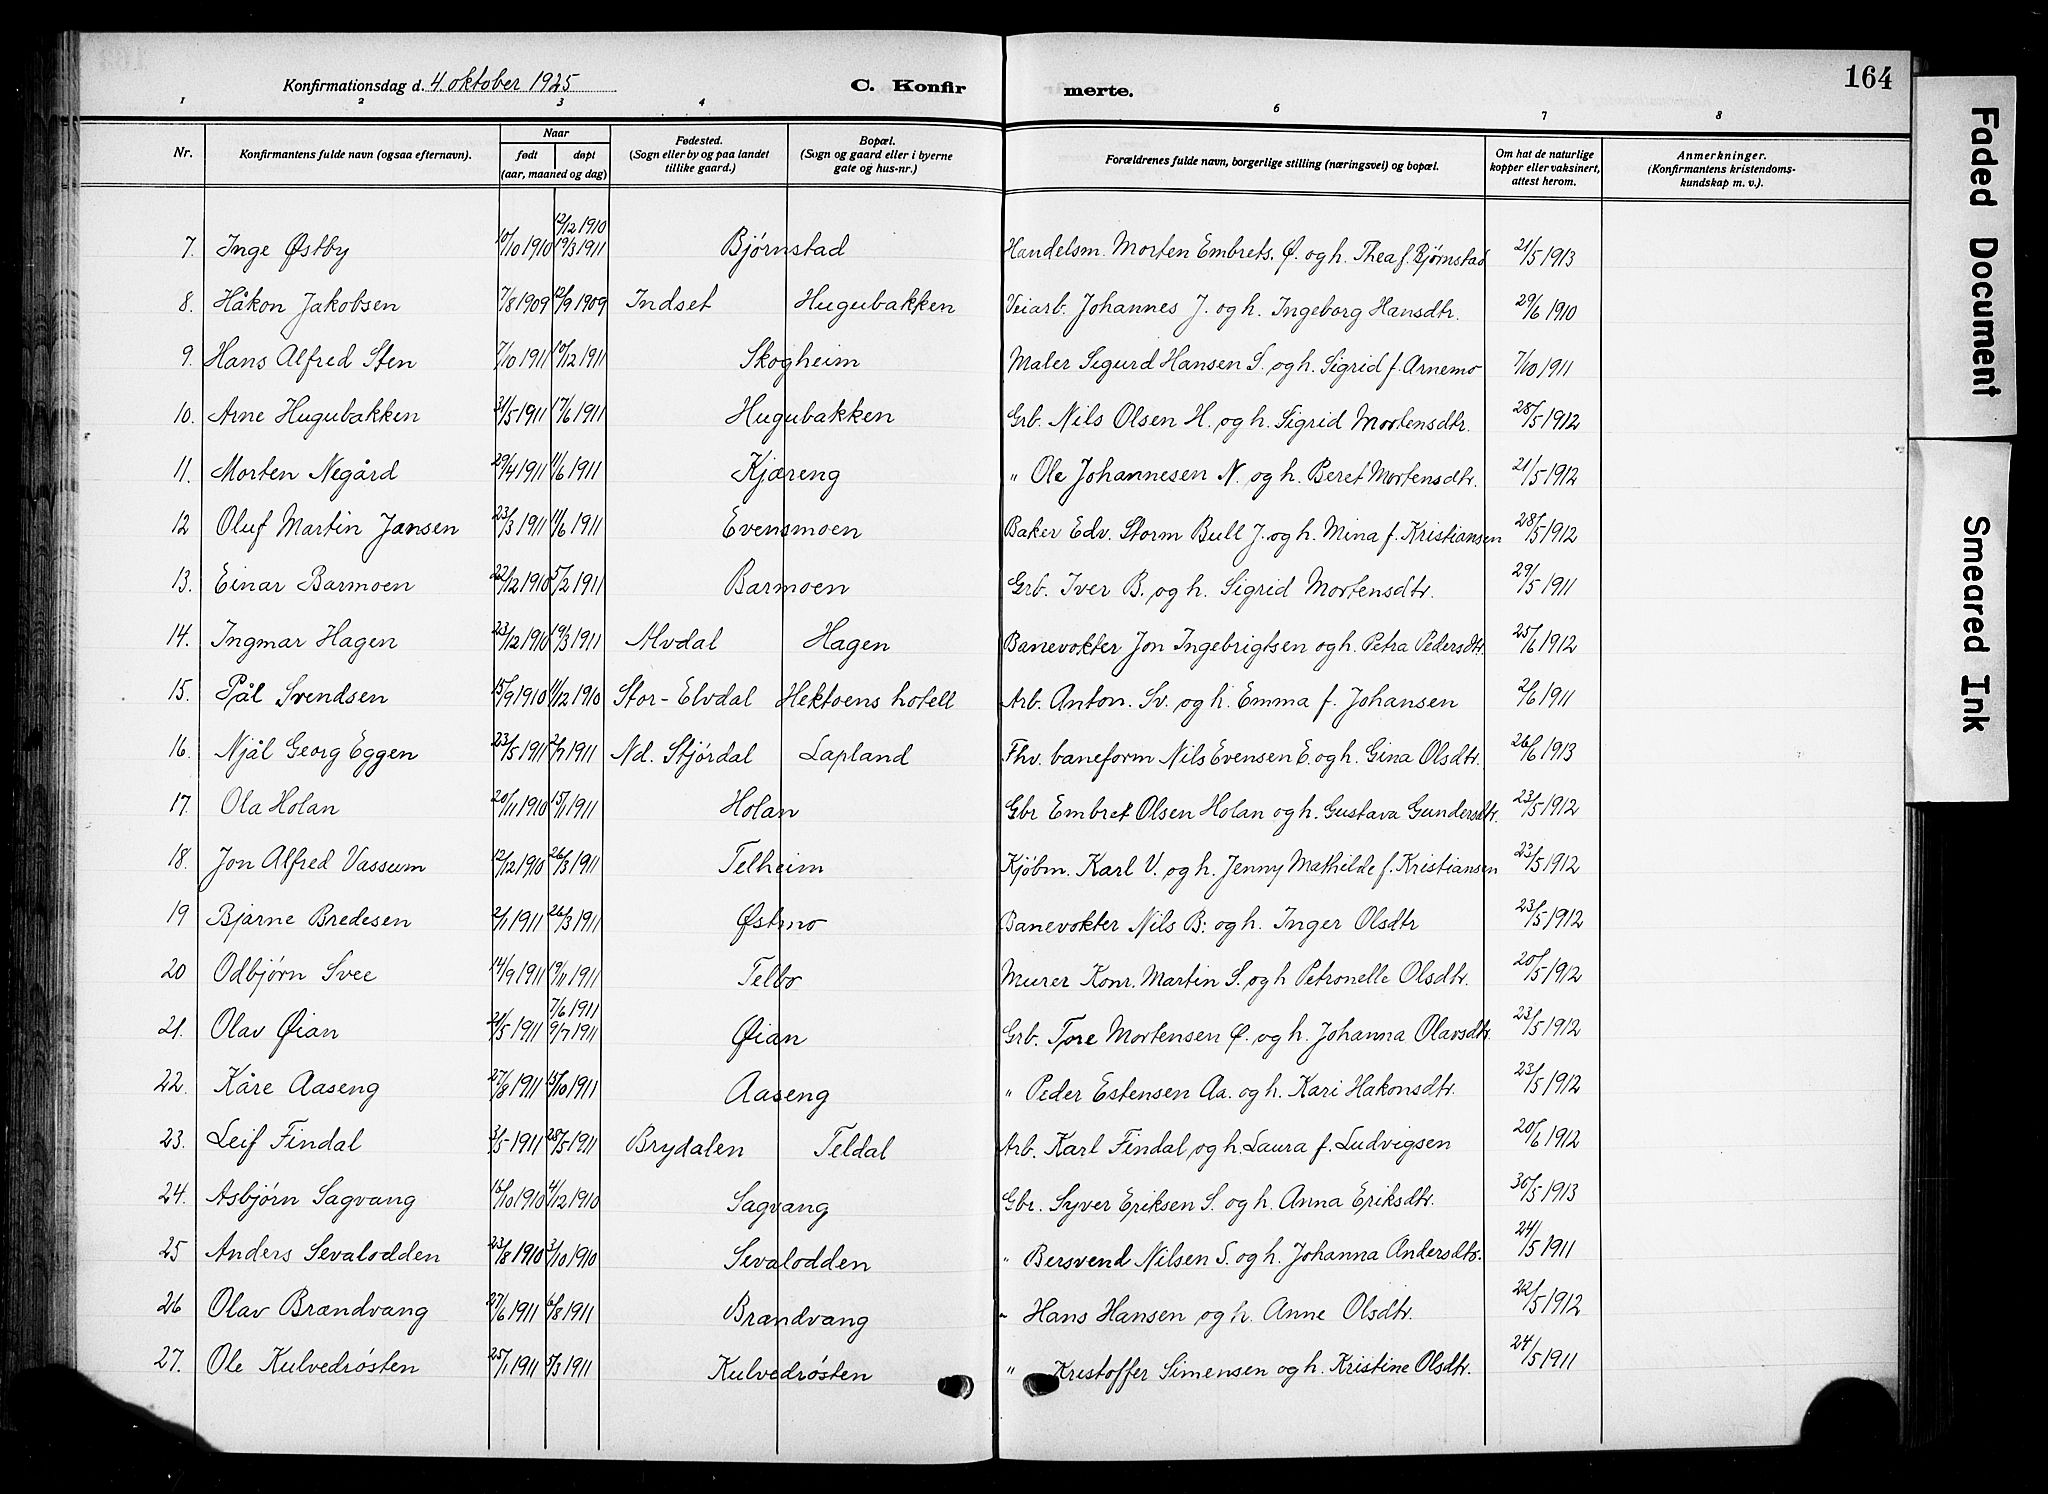 Konfirmationsdag d. 4. oktober 1925
C. Konfir merte.
164
1 2 3 4 5 6 7 8
Nr.
Konfirmantens fulde navn (ogsaa efternavn).
Naar
født døpt
(aar, maaned og dag)
Fødested.
(Sogn eller by og paa landet
tillike gaard.)
Bopæl.
(Sogn og gaard eller i byerne
gate og hus-nr.)
Forældrenes fulde navn, borgerlige stilling (næringsvei) og bopæl.
Om hat de naturlige
kopper eller vaksinert,
attest herom.
Anmerkninger.
(Konfirmantens kristendoms-
kundskap m. v.).
12/12 1910
7. Inge Østby 10/10 1910 19/3 1911 Bjørnstad Handelsm. Morten Embrets. Ø. og h. Thea f. Bjørnstad 21/5 1913
8. Håkon Jakobsen 7/8 1909 12/9 1909 Indset Hugubakken Veiarb. Johannes J. og h. Ingeborg Hansdtr. 29/6 1910
9. Hans Alfred Sten 7/10 1911 10/12 1911 Skogheim Maler Sigurd Hansen S. og h. Sigrid f. Arnemo 7/10 1911
10. Arne Hugubakken 31/5 1911 17/6 1911 Hugubakken Grb. Nils Olsen H. og h. Sigrid Mortensdtr. 28/5 1912
11. Morten Negård 29/4 1911 11/6 1911 Kjæreng " Ole Johannesen N. og h. Beret Mortensdtr. 21/5 1912
12 Oluf Martin Jansen 23/3 1911 11/6 1911 Evensmoen Baker Edv. Storm Bull J. og h. Mina f. Kristiansen 28/5 1912
13. Einar Barmoen 22/12 1910 5/2 1911 Barmoen Grb. Iver B. og h. Sigrid Mortensdtr. 29/5 1911
14. Ingmar Hagen 23/12 1910 19/3 1911 Alvdal Hagen Banevokter Jon Ingebrigtsen og h. Petra Pedersdtr. 25/6 1912
15. Pål Svendsen 15/9 1910 11/12 1910 Stor-Elvdal Hektoens hotell Arb. Anton. Sv. og h. Emma f. Johansen 2/6 1911
16. Njål Georg Eggen 23/5 1911 2/7 1911 Nd. Stjørdal Lapland Fhv. baneform Nils Evensen E. og h. Gina Olsdtr. 26/6 1913
17. Ola Holan 20/11 1910 15/1 1911 Holan Gbr Embret Olsen Holan og h. Gustava Gundersdtr. 23/5 1912
18. Jon Alfred Vassum 12/12 1910 26/3 1911 Telheim Kjøbm. Karl V. og h. Jenny Mathilde f. Kristiansen 23/5 1912
19 Bjarne Bredesen 2/1 1911 26/3 1911 Østmo Banevokter Nils B: og h. Inger Olsdtr 23/5 1912
20 Odbjørn Svee 14/9 1911 19/11 1911 Telbo Murer Konr. Martin S. og h Petronelle Olsdtr. 20/5 1912
7/6 1911
21. Olav Øian 21/5 1911 9/7 1911 Øian Grb. Tore Mortensen Ø. og h. Johanna Olavsdtr. 23/5 1912
22. Kåre Aaseng 27/8 1911 15/10 1911 Aaseng " Peder Estensen Aa. og h. Kari Hakonsdtr. 23/5 1912
23. Leif Findal 3/5 1911 28/5 1911 Brydalen Teldal Arb. Karl Findal og h. Laura f. Ludvigsen 20/6 1912
24. Asbjørn Sagvang 16/10 1910 4/12 1910 Sagvang Gbr. Syver Eriksen S. og h. Anna Eriksdtr. 30/5 1913
25 Anders Sevalodden 23/8 1910 3/10 1910 Sevalodden " Bersvend Nilsen S. og h. Johanna Andersdtr. 24/5 1911
26 Olav Brandvang 27/6 1911 6/8 1911 Brandvang " Hans Hansen og h. Anne Olsdtr. 22/5 1912
27. Ole Kulvedrøsten 25/1 1911 5/3 1911 Kulvedrøsten " Kristoffer Simensen og h. Kristine Olsdtr. 24/5 1911
Faded Document
Smeared Ink